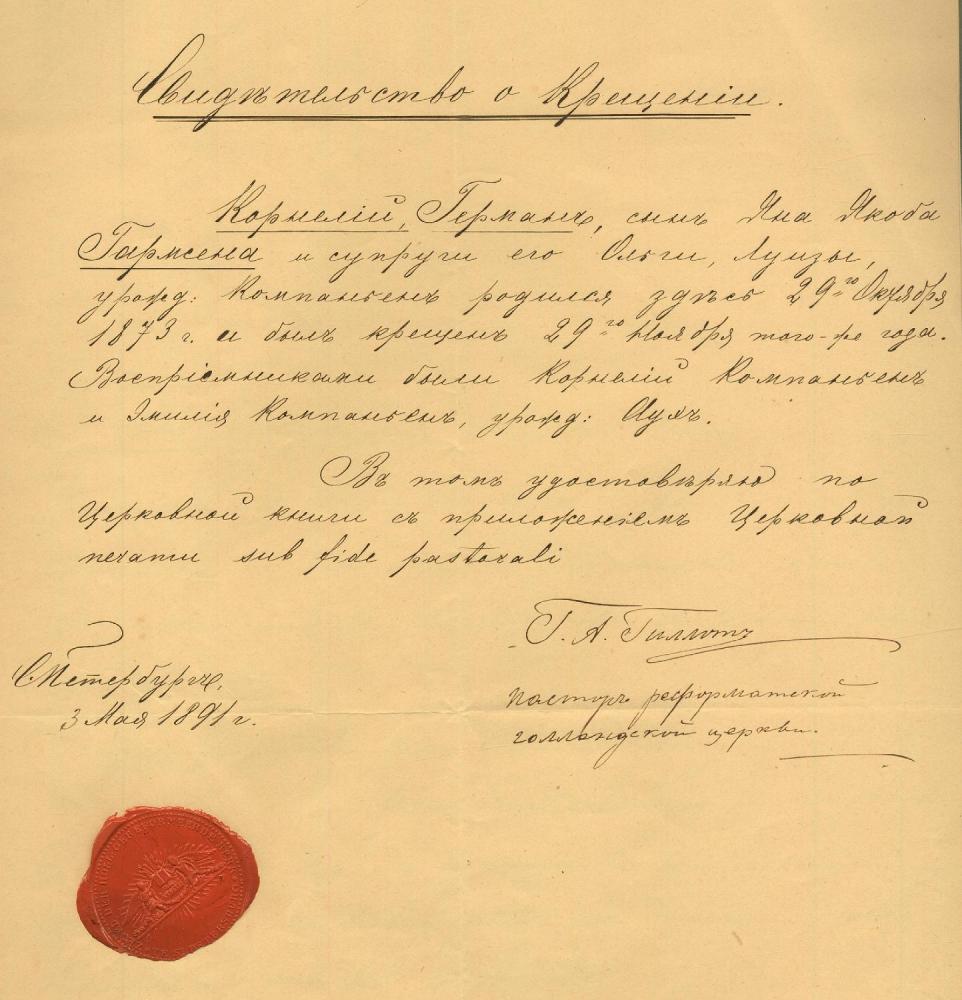 Свидѣтельство о Крещеніи.
Корнелій, Германъ, сынъ Яна Якоба
Гармсена и супруги его Ольги, Луизы,
урожд: Компаньенъ родился здѣсь 29-го Октября
1873 г. и былъ крещенъ 29-го Ноября того-же года.
Воспріемниками были Корнелій Компаньенъ
и Эмилія Компаньенъ, урожд:
Въ томъ удостовѣряю по
Церковной книги съ приложеніемъ Церковной
печати sub fide pastorali
Г. А. Гиллотъ
пасторъ реформатской
голландской церкви.
СПетербургъ,
3 Мая 1891 г.